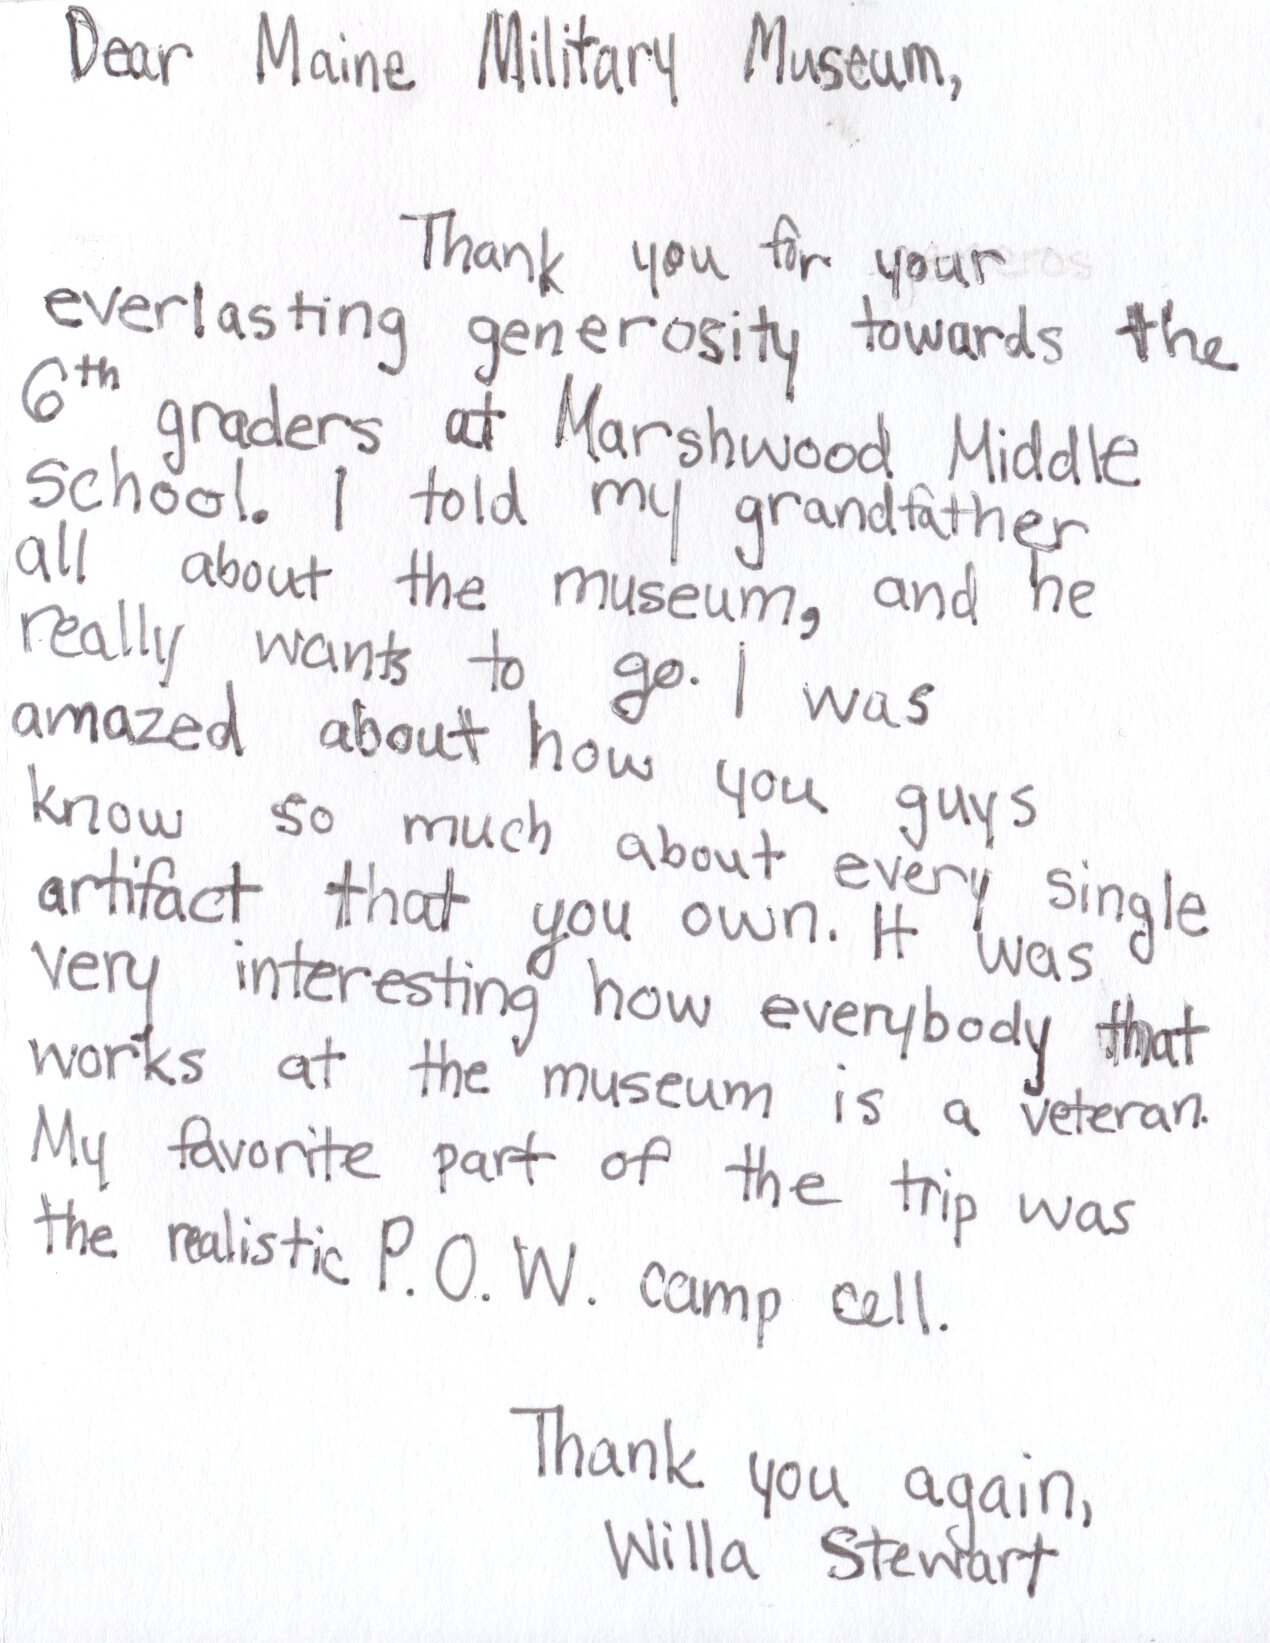 Dear Maine Military Museum,
Thank you for your
everlasting generosity towards the
6th graders at Marshwood Middle
school. I told my grandfather
all about the museum, and he
really wants to go. I was
amazed about how you guys
know so much about every single
artifact that you own. It was
very interesting how everybody that
works at the museum is a veteran.
My favorite part of the trip was
the realistic P.O.W. camp cell.
Thank you again,
Willa Stewart